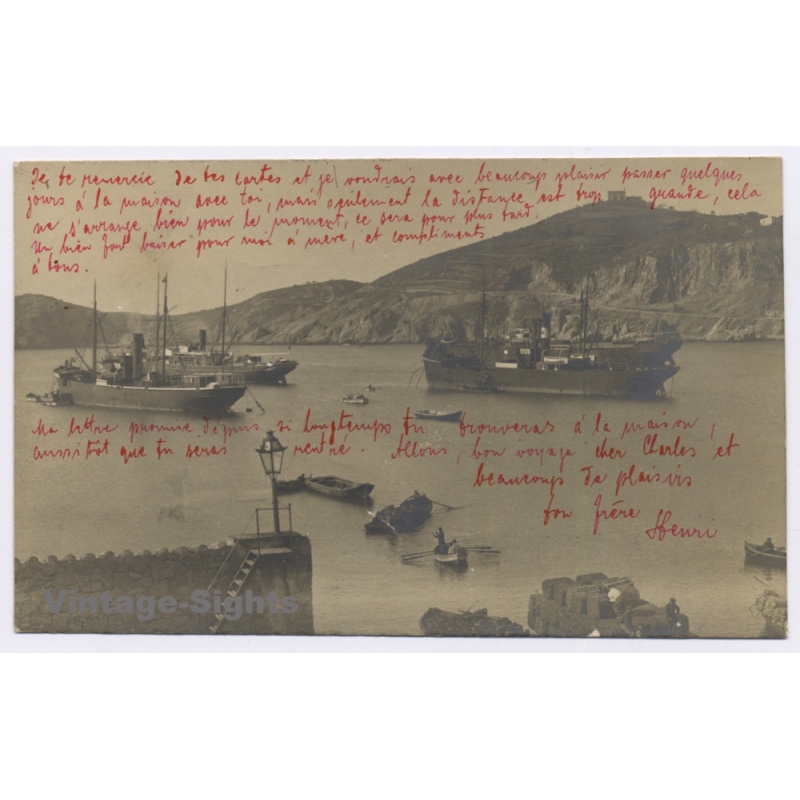 Je te remercie de tes cartes et je voudrais avec beaucoup plaisir passer quelques
jours à la maison avec toi, mais seulement la distance est trop grande, cela
ne s'arrange bien pour le moment, ce sera pour plus tard.
Un bien fort baiser pour moi à mère, et compliments
à tous.
Ma lettre promise dépuis si longtemps tu trouveras à la maison,
aussitôt que tu seras rentré. Allons, bon voyage cher Charles et
beaucoup de plaisirs
ton frère
Henri
Vintage-Sights